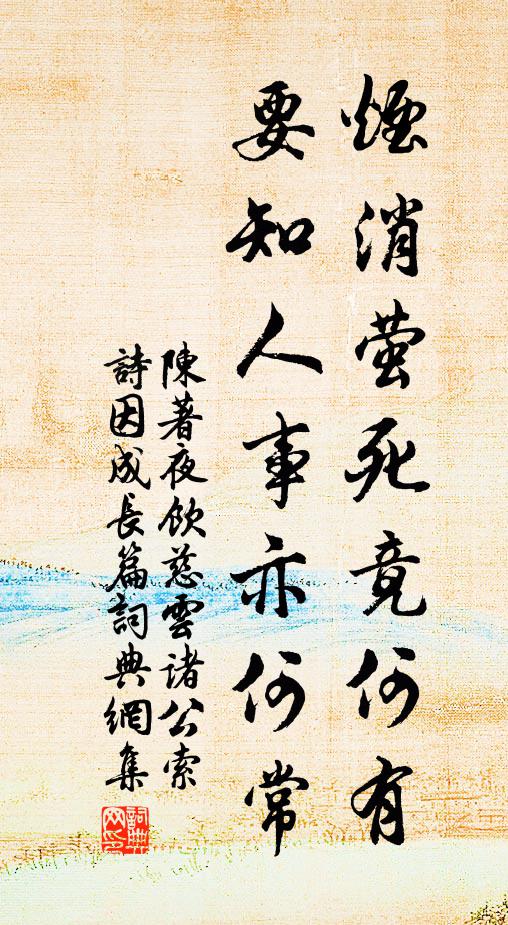 煙消萤死竟何有
要知人事亦何常
陳著夜飲慈雲诸公索
詩因成長篇詞典網集
詞典
网印